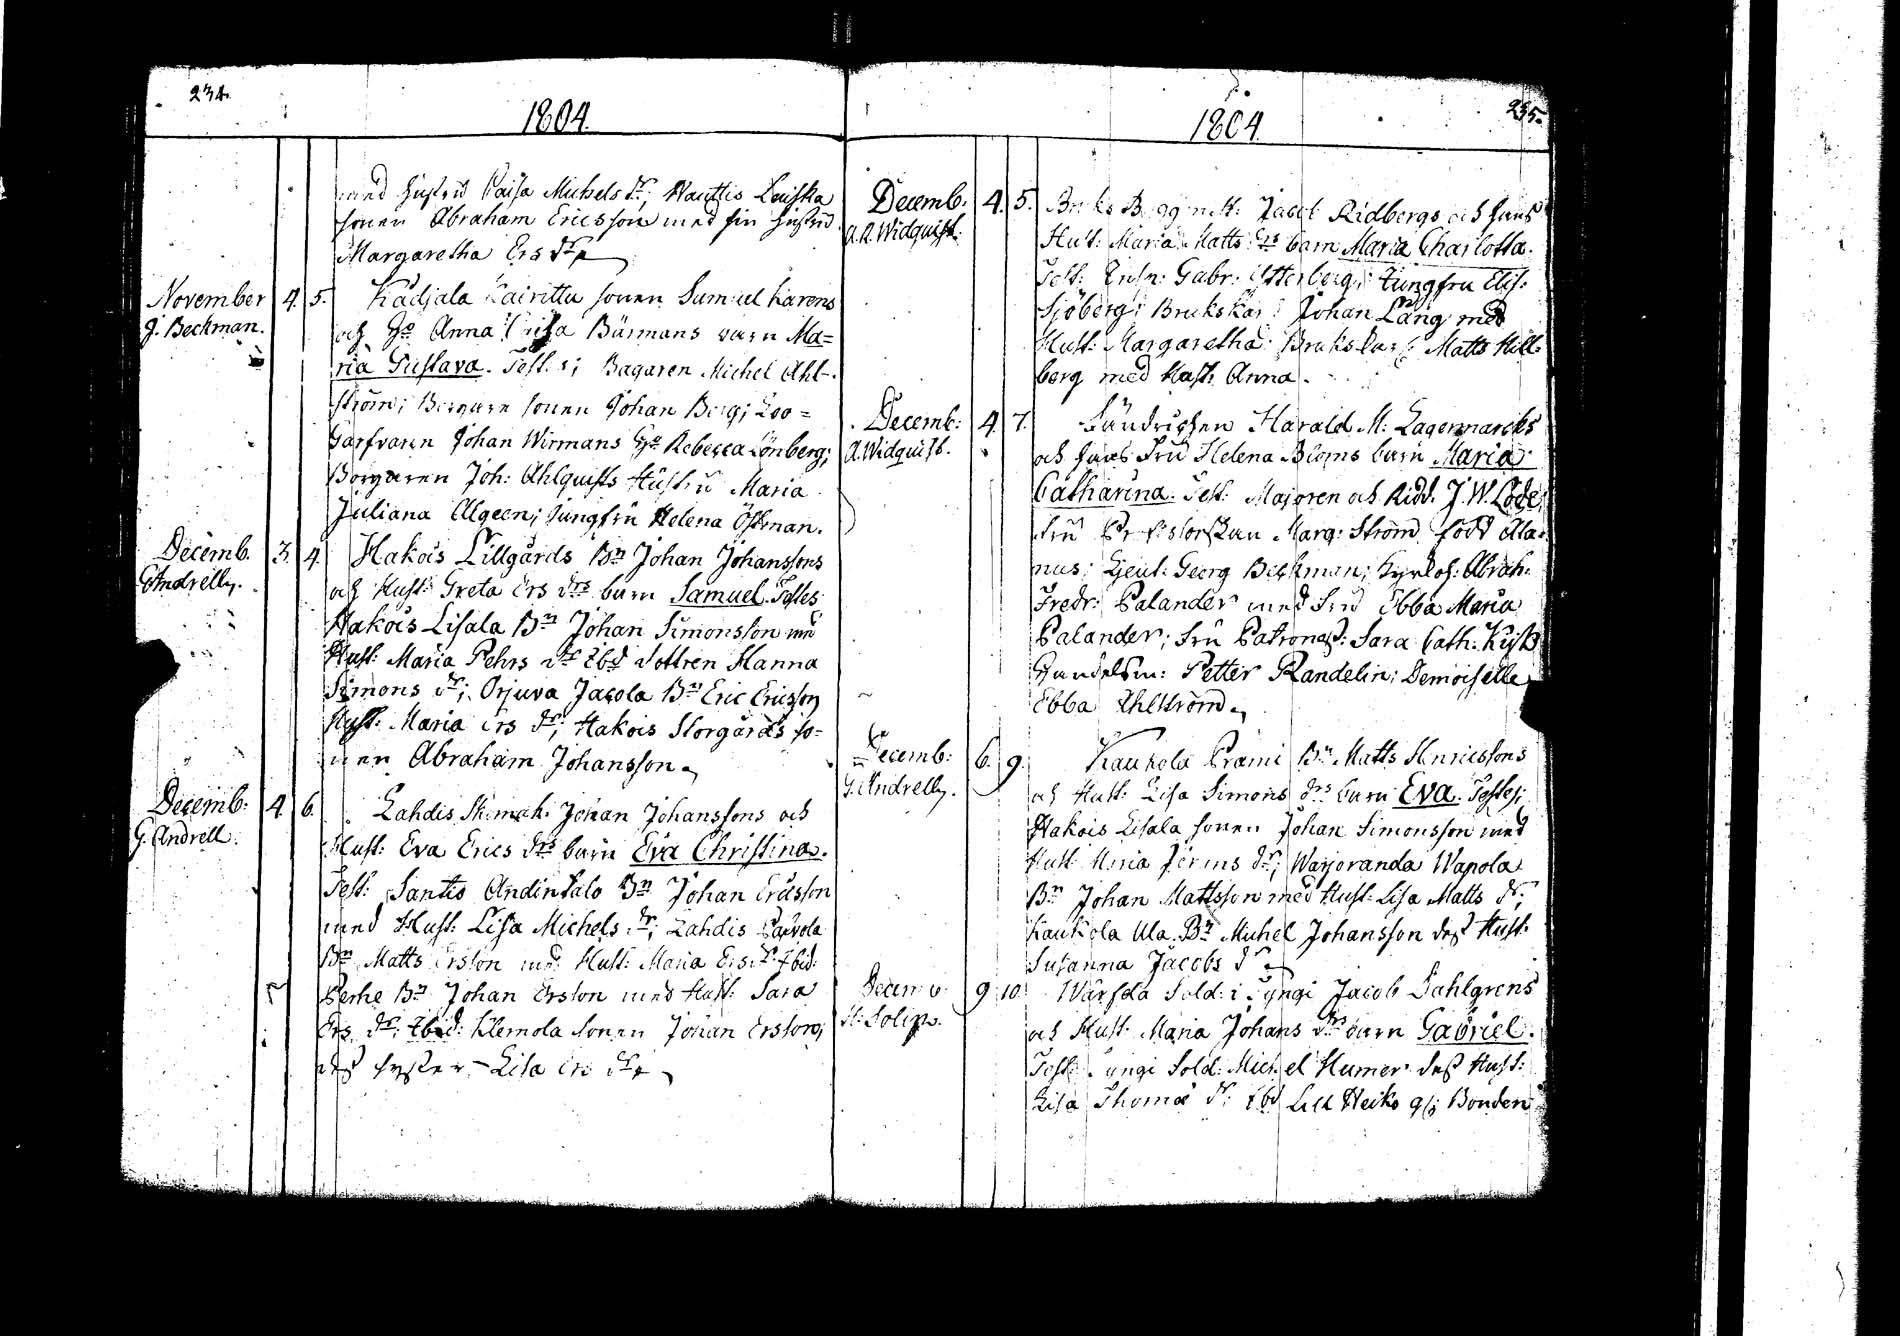 234.
1804.
med hustru Caisa Michels dr; Nauttis Knuska
sonen Abraham Ericsson med sin hustru
Margaretha Ers dr
November 4. 5. Kädjala Kairittu sonen Samuel Karens
J. Beckman. och Ho Anna Caisa Bärmans barn Ma=
ria Gustava. Test: Bagaren Michel Ahl-
ström; Borgare sonen Johan Berg; Loo=
Garfvaren Johan Wirmans Ho Rebecca Lönberg;
Borgaren Joh: Ahlquists Hustru Maria
Juliana Algeen; Jungfru Helena Östman.
Decemb. 3. 4. Hakois Lillgårds Bn Johan Johanssons
G. Andrell. och Hust: Greta Ers drs barn Samuel. Testes
Hakois Lisala Bn Johan Simonsson med
Hust: Maria Pehrs dr Ebd dottren Hanna
Simons dr; Orjuva Jacola Bn Eric Ericsson
Hust: Maria Ers dr; Hakois Storgårds so=
nen Abraham Johansson
Decemb: 4. 6. Lahdis Johan Johanssons och
G. Andrell. Hust: Eva Erics drs barn Eva Christina.
Test: Santio Andintalo Bn Johan Ericsson
med Hust: Lisa Michels dr; Lahdis Parvola
Bn Matts Ersson med Hust: Maria Ers dr Ibid:
Perhe Bn Johan Ersson med Hust: Sara
Ers dr; Ibid: Klemola sonen Johan Ersson,
dess syster Lisa Ers dr
235.
1804.
Decemb. 4. 5. Bruks Byggm: Jacob Ridbergs och hans
A. R. Widquist. Hust: Maria Matts drs barn Maria Charlotta.
Test: Gabr: Österberg; Jungfru Elis:
Sjöberg; Bruks Johan Lång med
Hust: Margaretha; Bruks Matts Hill-
berg med Hust. Anna.
Decemb: 4. 7. Fändrichen Harald M: Lagermarcks
A. Widquist. och hans Fru Helena Bloms barn Maria
Catharina. Test: Majoren och Ridd. J. W. Lode;
Fru Marg: Ström, född Ala-
nus; Lieut: Georg Beckman; Abrah:
Fredr: Palander med Fru Ebba Maria
Palander; Fru Sara Cath:
Handelsm: Petter Randelin; Demoiselle
Ebba Ahlström
Decemb: 6. 9. Kaukola Prami Bn Matts Henricssons
G. Andrell. och Hust: Lisa Simons drs barn Eva. Testes;
Hakois Lisala sonen Johan Simonsson med
Hust Maria dr; Warjoranda Wapola
Bn Johan Mattsson med Hust: Lisa Matts dr;
Kaukola Ula Bn Michel Johansson dess Hust:
Susanna Jacobs dr
Decemb 9 10 Sold: i Syngi Jacob Dahlgrens
och Hust: Maria Johans drs barn Gabriel.
Test: Syngi Sold: Michel Humer dess Hust:
Lisa Thomæ dr; Ebd Lill Heiko Bonden